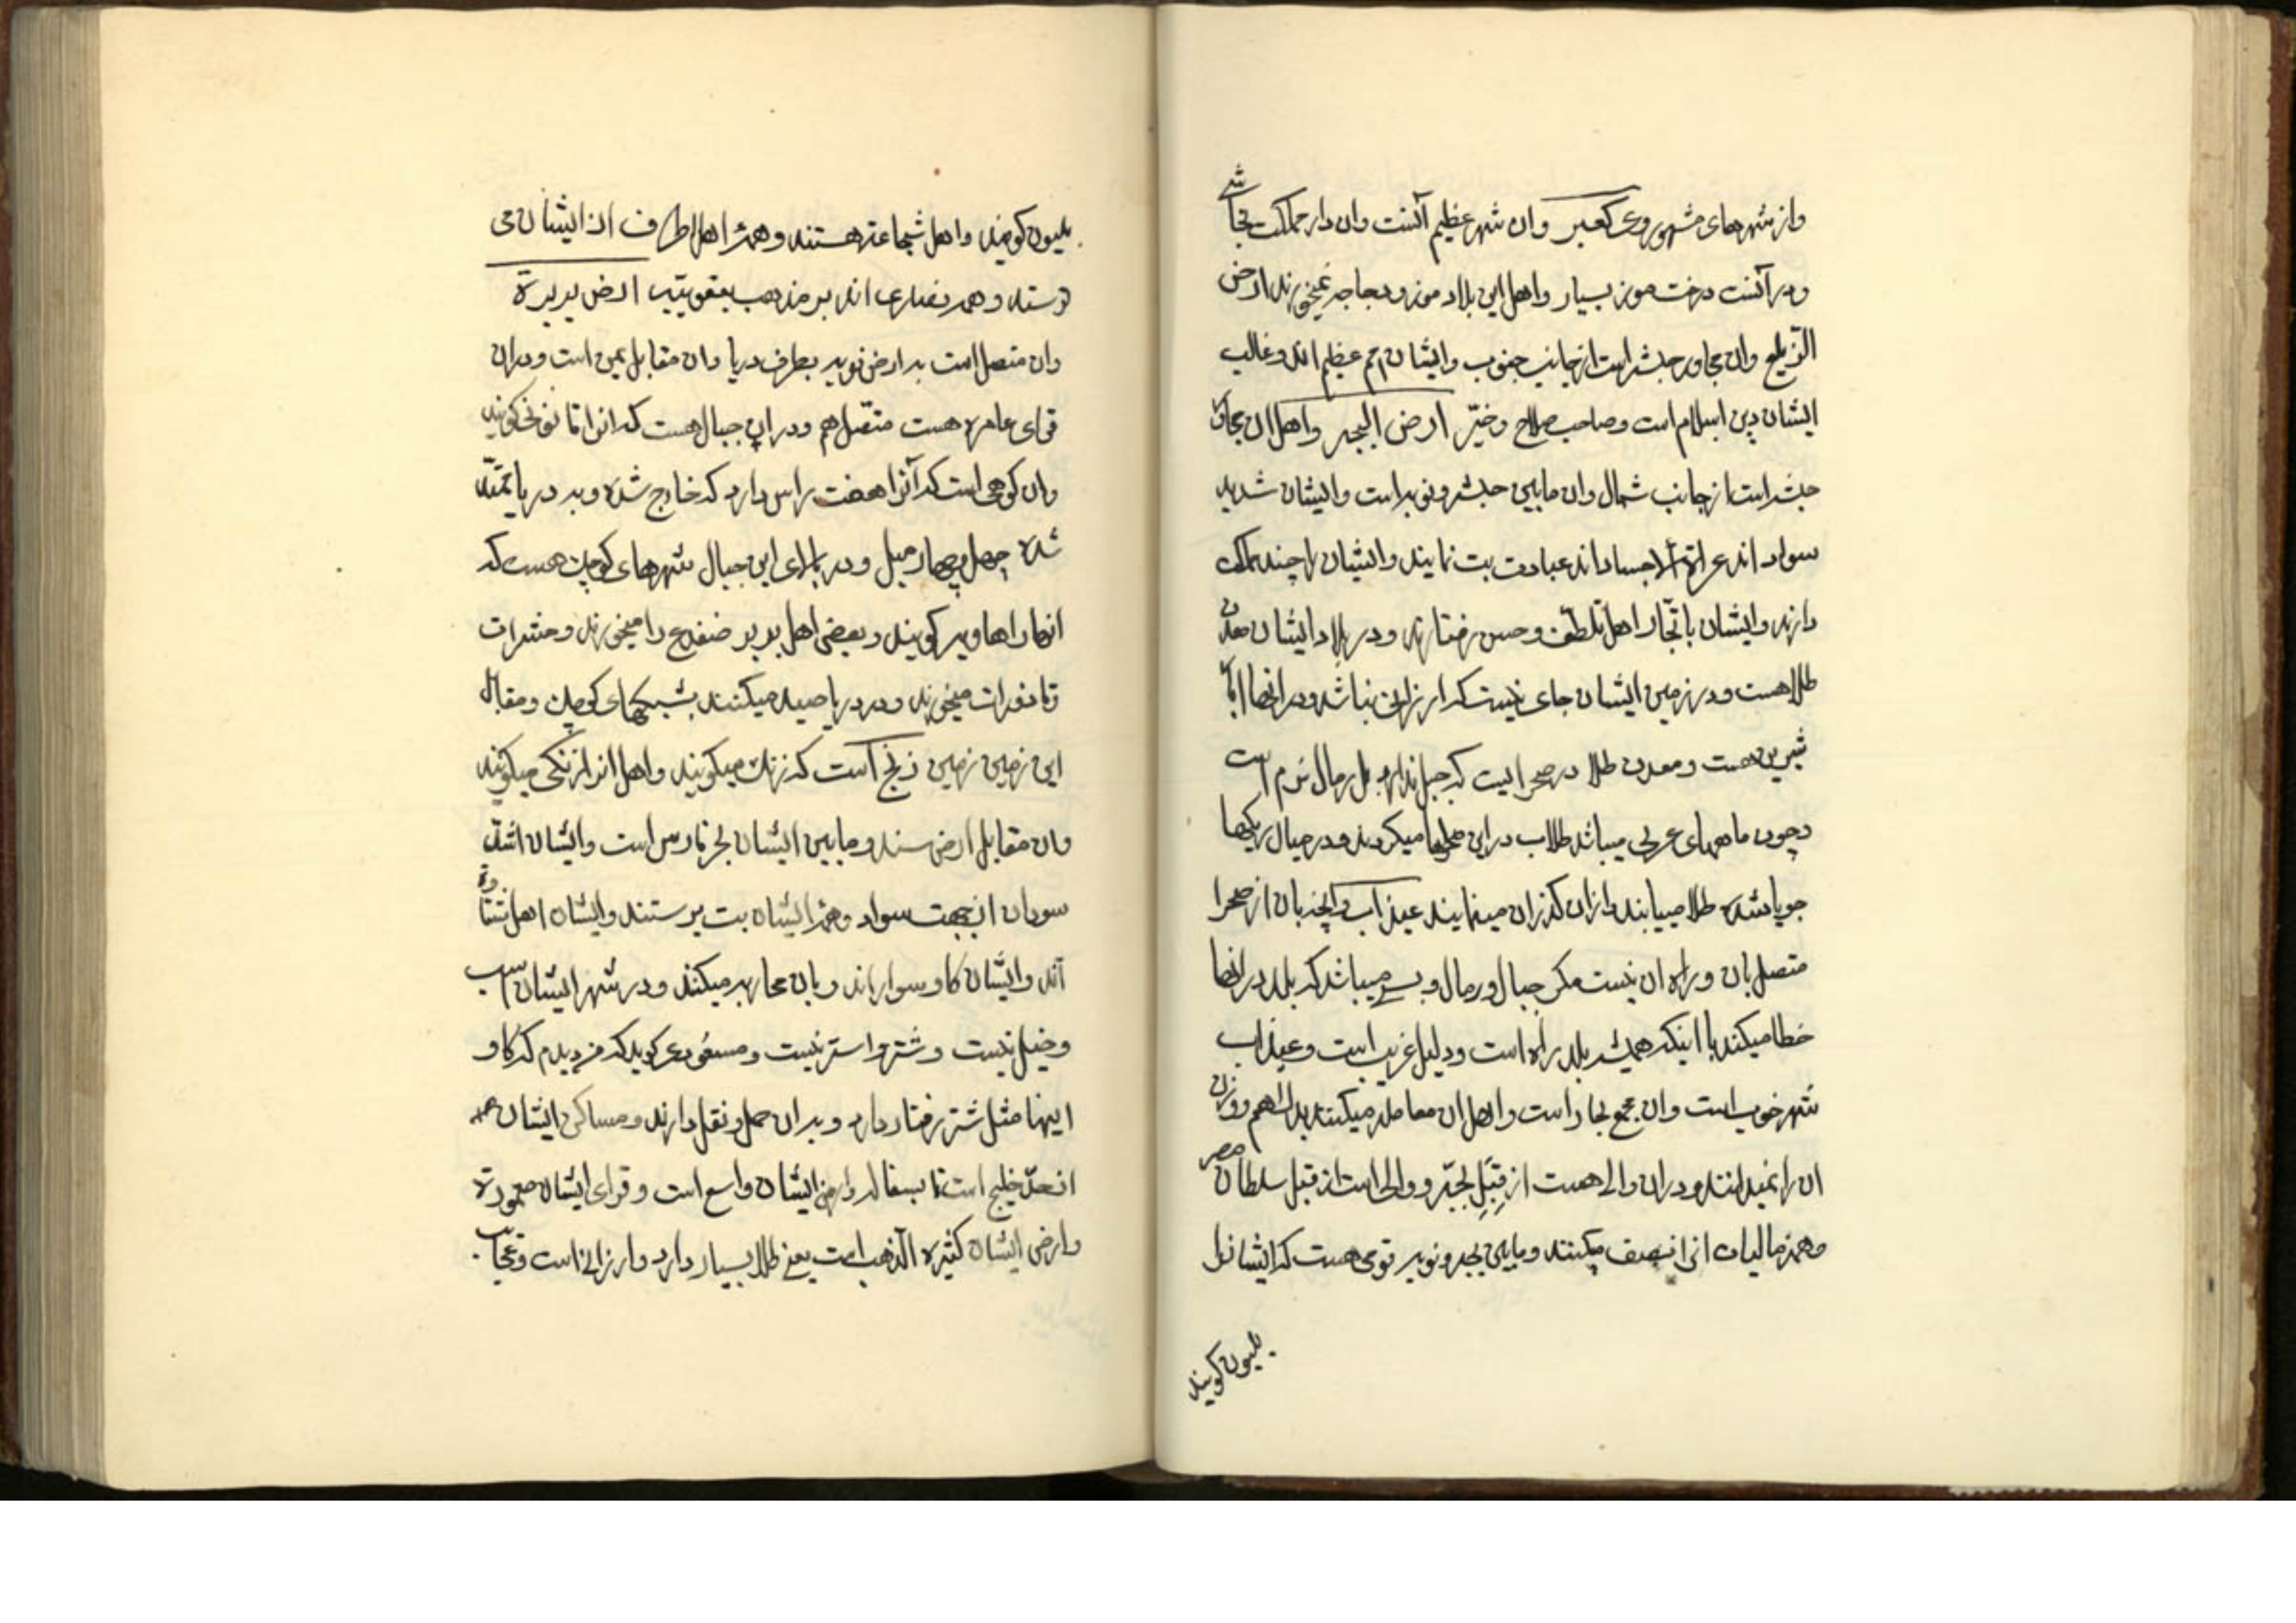 واز شهرهای مشهور وی کعبر وان شهر عظیم آنست وان دار مملکت نجاشی
ودر آنست درخت موز بسیار واهل این بلاد موز ودجاجه نمیخورند ارض
الزیلع وان مجاور حبشه است از جانب جنوب وایشان امم عظیم اند وغالب
ایشان دین اسلام است وصاحب صلاح وخیّر ارض البجه واهل ان مجاور
حبشه است از جانب شمال وان مابین حبشه ونوبه است وایشان شدید
سواد اند عراة الاجساد اند عبادت بت نمایند وایشان را چند مملکت
دارند وایشان با تجّار اهل تلطّف وحسن رفتارند ودر بلاد ایشان معدن
طلا هست ودر زمین ایشان جای نیست که ارزانی نباشد ودر انجا
شیرین هست ومعدن طلا در صحرا ایست که جبل ندارد بل رمال نرم است
وچون ماههای عربی میباشد طلاب در این میکردند ودر میان ریکها
جویا شده طلا مییابند وازان کذران مینمایند عیذاب از صحرا
متصل بان وراه ان نیست مکر جبال ورمال وبسی میباشد که بلد در انجا
خطا میکند با اینکه همیشه بلد راه است ودلیل غریب است وعیذاب
شهر خوب است وان مجمع تجار است واهل ان معامله میکنند بدراهم ووزن
ان را نمیدانند ودران والی هست از قِبَلِ بجّه ووالی است از قبل سلطان مصر
وهمه مالیات انرا نصف میکنند ومابین بجه ونوبه قومی هست که ایشانرا
بلیون کویند
بلیون کویند واهل شجاعة هستند وهمه اهل اطراف از ایشان می
ترسند وهمه نصاری اند بر مذهب یعقوبیّه ارض بربرة
وان متصل است به ارض نوبه بطرف دریا وان مقابل یمن است ودران
قرای عامره هست متصل بهم ودران جبال هست که انرا قانونی کویند
وان کوهی است که آنرا هفت راس دارد که خارج شده وبه دریا ممتد
شده چهل وچهار میل ودر بالای این جبال شهرهای کوچک هست که
انها را هاویه کویند وبعضی اهل بربر ضفدع را میخورند وحشرات
وقاذورات میخورند ودر دریا صید میکنند بشبکهای کوچک ومقابل
این زمین زمین زنج است که زنک میکویند واهل انرا زنکی میکویند
وان مقابل ارض سند ومابین ایشان بحر فارس است وایشان اشدّ
سودان از جهت سواد وهمه ایشان بت پرستند وایشان اهل شقاوة
اند وایشان کاو سوار اند وبان محاربه میکنند ودر شهر ایشان اسب
وخیل نیست وشتر واستر نیست ومسعودی کوید که من دیدم که کاو
اینها مثل شتر رفتار دارد وبدان حمل ونقل دارند ومساکن ایشان
از حدّ خلیج است تا بسفاله وارض ایشان واسع است وقرای ایشان معمورة
وارض ایشان کثیره الذهب است یعنی طلا بسیار دارد وارزانی است وعجایب